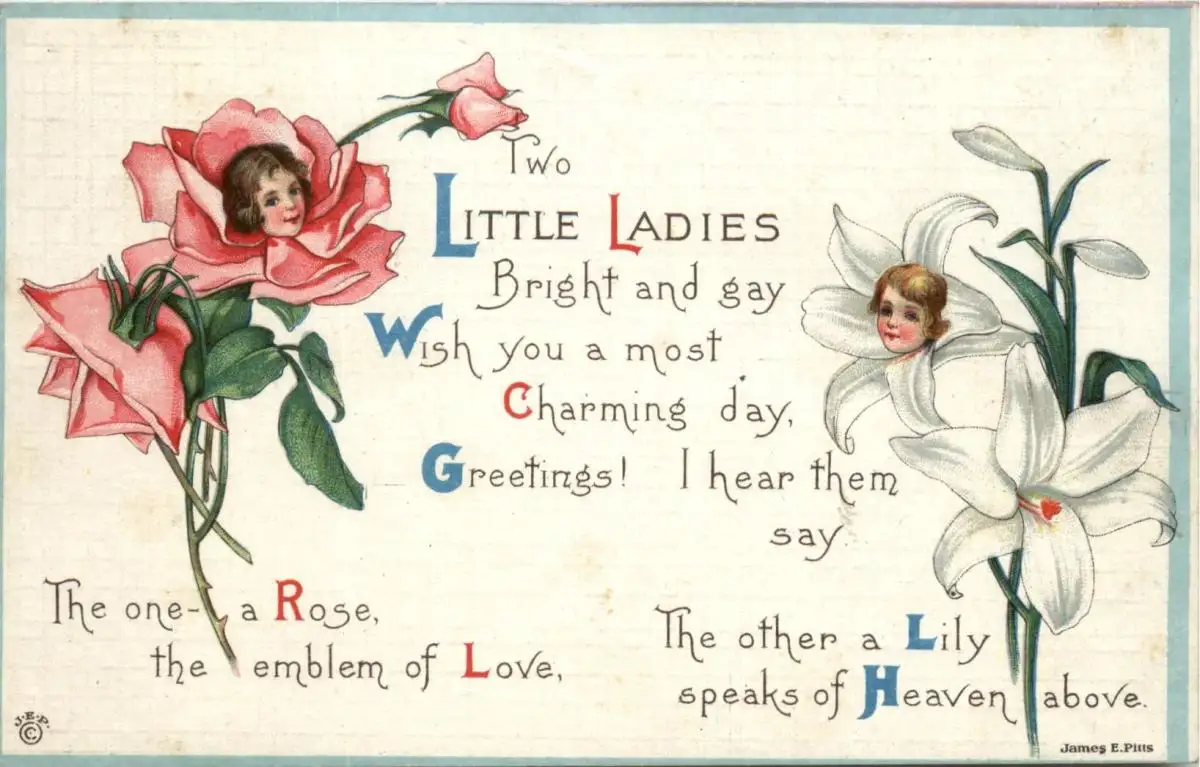 Two
LITTLE LADIES
Bright and gay
Wish you a most
Charming day,
Greetings! I hear them
say.
The one- a Rose,
the emblem of Love,
The other a Lily
speaks of Heaven above.
J.E.P.
©
James E. Pitts